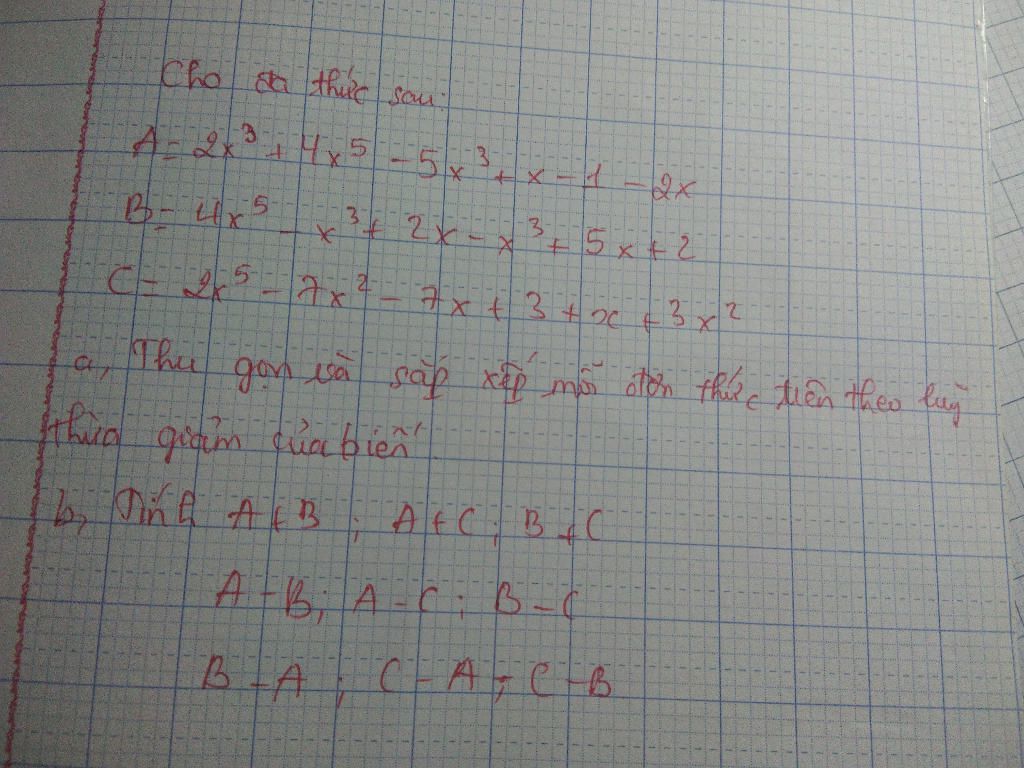 Cho đa thức sau:
A = 2x³ + 4x⁵ - 5x³ + x - 1 - 2x
B = 4x⁵ - x³ + 2x - x³ + 5x + 2
C = 2x⁵ - 7x² - 7x + 3 + x + 3x²
a, Thu gọn và sắp xếp mỗi đơn thức trên theo luỹ
thừa giảm của biến
b, Tính A + B ; A + C ; B + C
A - B ; A - C ; B - C
B - A ; C - A ; C - B